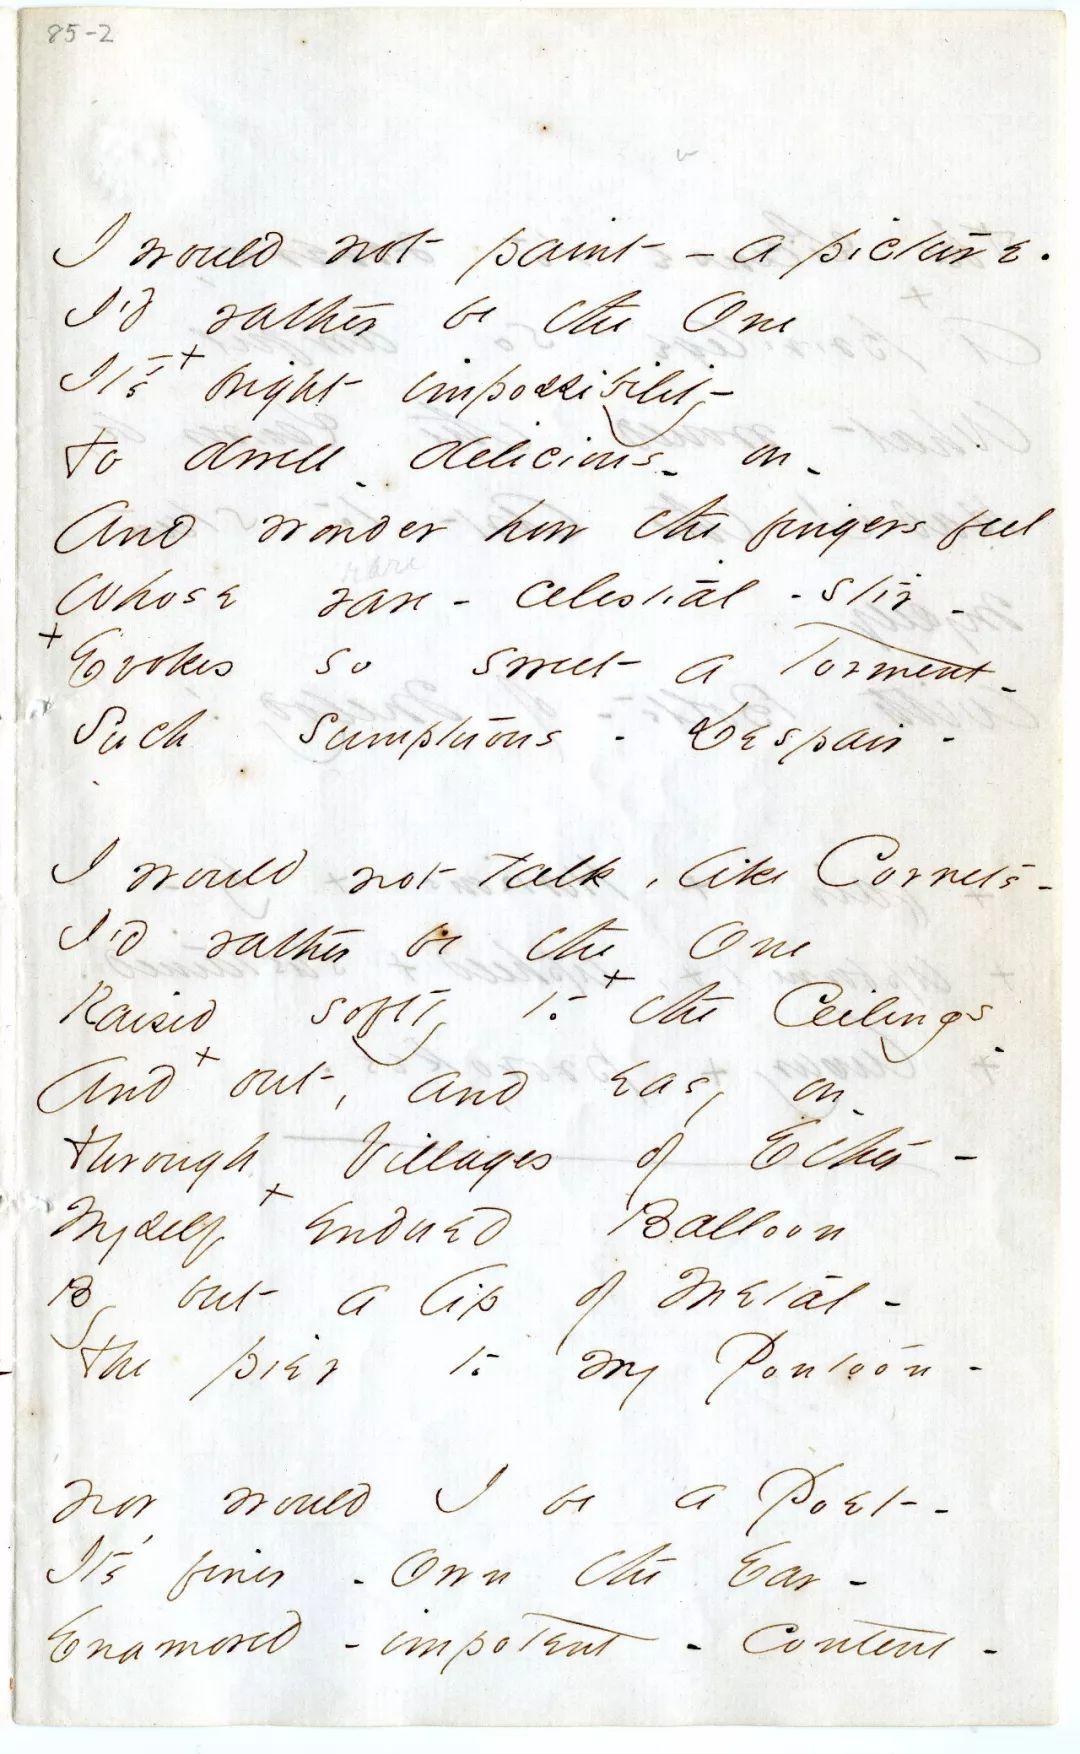 85-2
I would not paint - a picture.
I'd rather be the One
It's + bright impossibility
To dwell - delicious - on -
And wonder how the fingers feel
rare
Whose rare - celestial - stir -
+ Evokes so sweet a Torment -
Such sumptuous - Despair -
I would not talk, like Cornets -
I'd rather be the One
Raised softly to + the Ceilings -
And + out, and easy on -
Through Villages of Ether -
Myself + endued Balloon
By but a lip of Metal -
The pier to my Pontoon -
Nor would I be a Poet -
It's finer - Own the Ear -
Enamored - impotent - content -